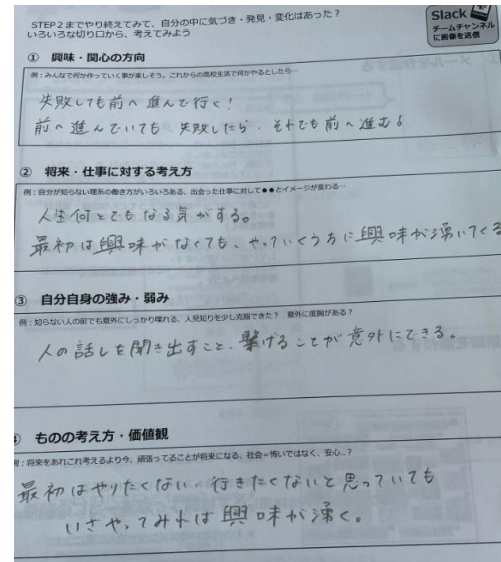 STEP2までやり終えてみて、自分の中に気づき・発見・変化はあった?
いろいろな切り口から、考えてみよう
Slack
チームチャンネル
に画像を送信
① 興味・関心の方向
例:みんなで何か作っていく事が楽しそう。これからの高校生活で何かやるとしたら…
失敗しても前へ進んで行く!
前へ進んでいても失敗したら、それでも前へ進む。
② 将来・仕事に対する考え方
例:自分が知らない理系の働き方がいろいろある、出会った仕事に対して●●とイメージが変わる…
人生何とでもなる気がする。
最初は興味がなくても、やっていくうちに興味が湧いてくる
③ 自分自身の強み・弱み
例:知らない人の前でも意外にしっかり喋れる、人見知りを少し克服できた? 意外に度胸がある?
人の話しを聞き出すこと、繋げることが意外にできる。
ものの考え方・価値観
例:将来をあれこれ考えるより今、頑張ってることが将来になる、社会=怖いではなく、安心…?
最初はやりたくない、行きたくないと思っていても
いざやってみれは興味が湧く。